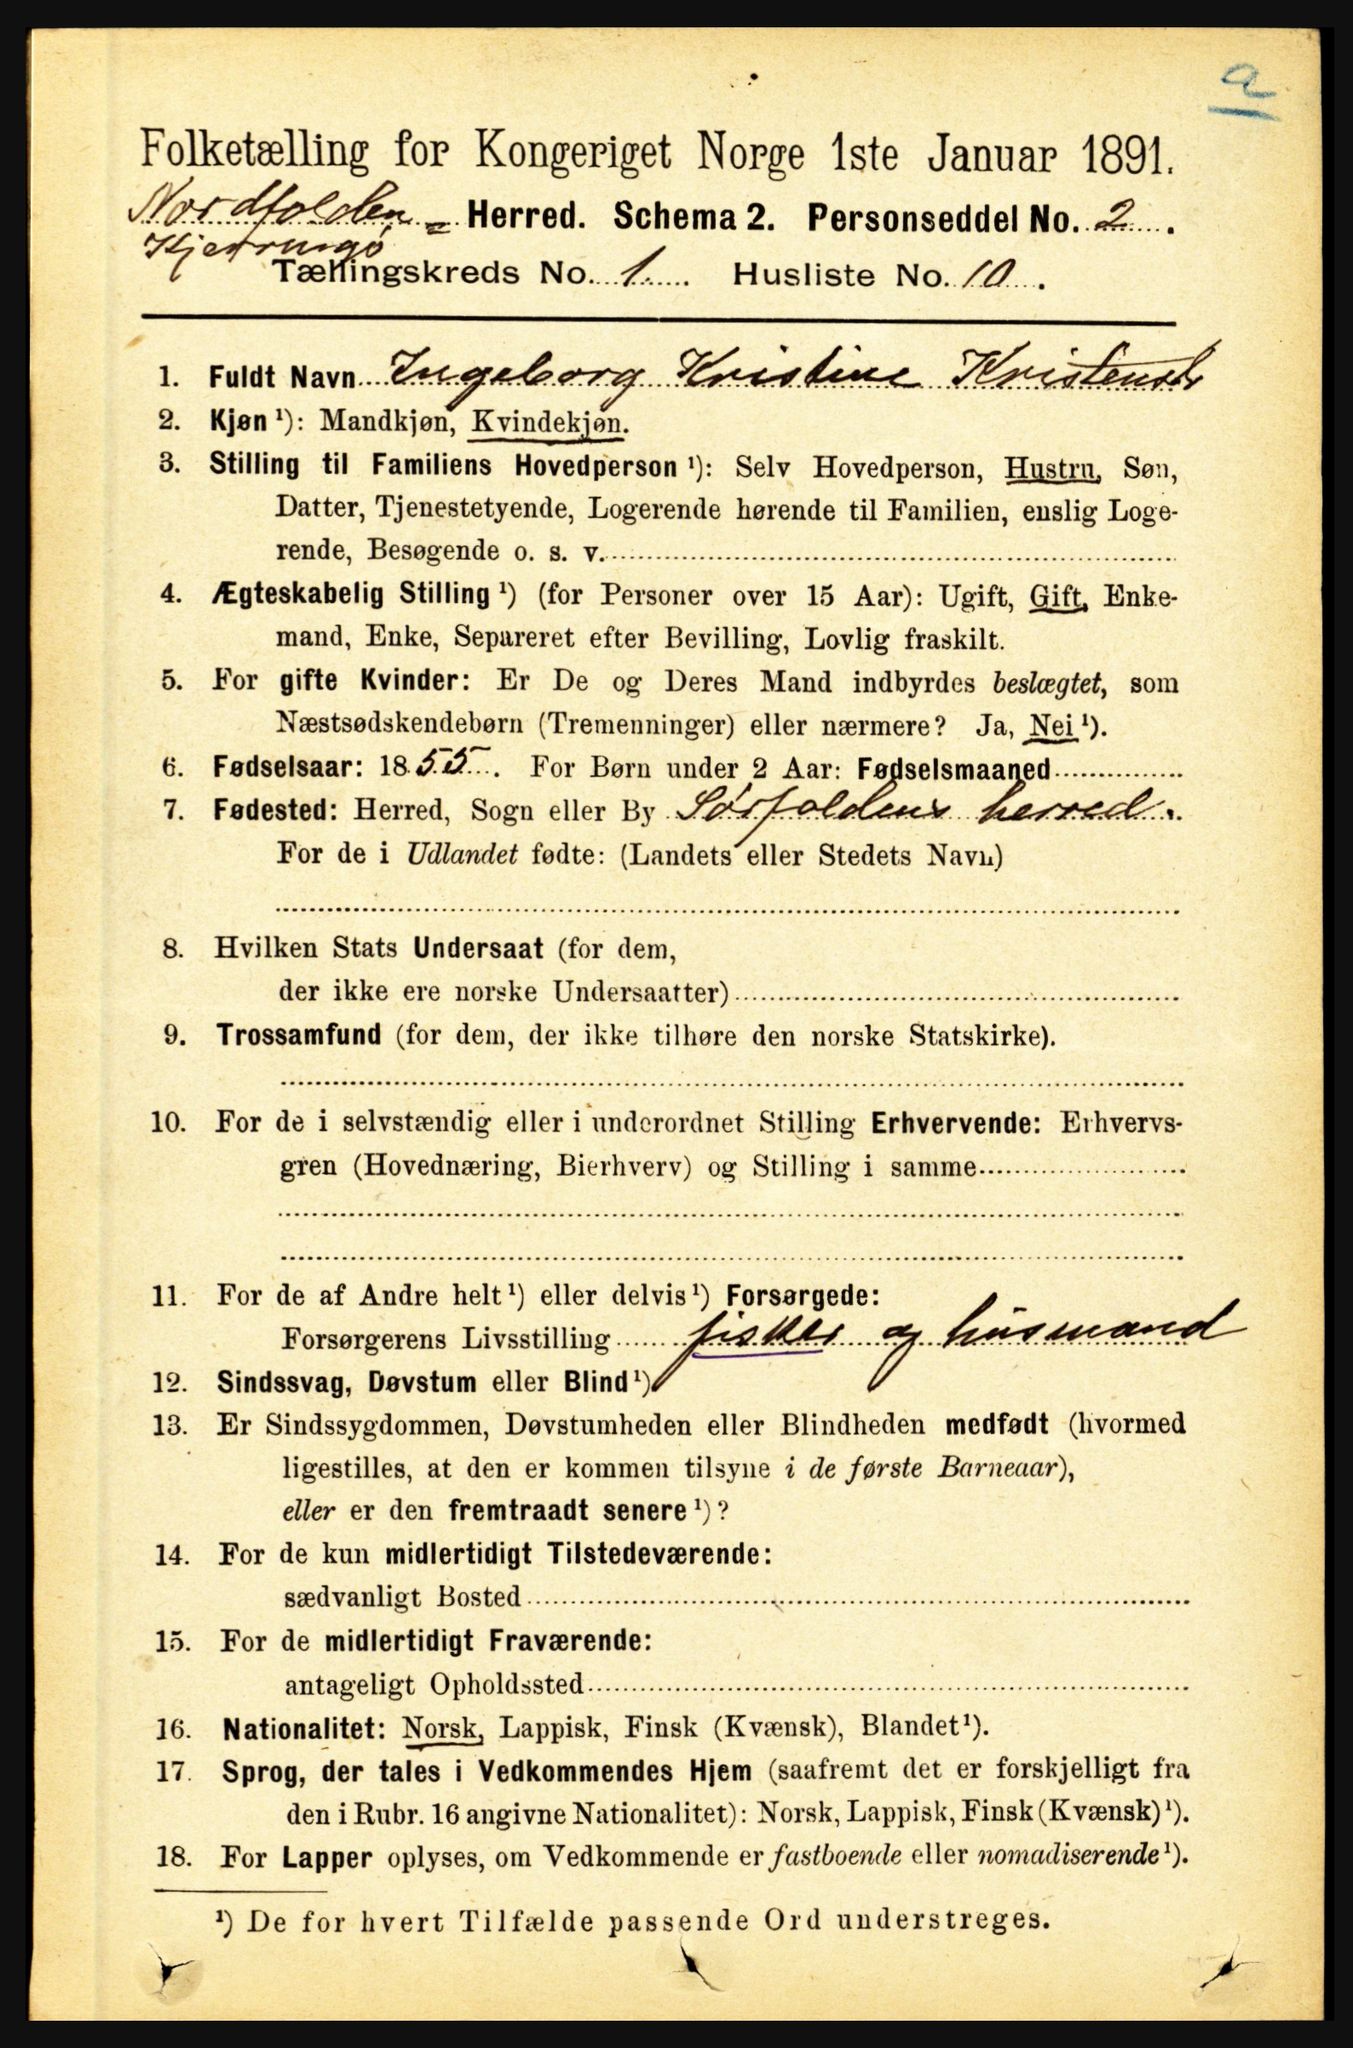 a
Folketælling for Kongeriget Norge 1ste Januar 1891.
Nordfolden = Herred. Schema 2. Personseddel No. 2.
Kjerringø
Tællingskreds No. 1. Husliste No. 10.
1. Fuldt Navn Ingeborg Kristine Kristensdr
2. Kjøn ¹): Mandkjøn, Kvindekjøn.
3. Stilling til Familiens Hovedperson ¹): Selv Hovedperson, Hustru, Søn,
Datter, Tjenestetyende, Logerende hørende til Familien, enslig Loge-
rende, Besøgende o. s. v.
4. Ægteskabelig Stilling ¹) (for Personer over 15 Aar): Ugift, Gift, Enke-
mand, Enke, Separeret efter Bevilling, Lovlig fraskilt.
5. For gifte Kvinder: Er De og Deres Mand indbyrdes beslægtet, som
Næstsødskendebørn (Tremenninger) eller nærmere? Ja, Nei ¹).
6. Fødselsaar: 1855. For Børn under 2 Aar: Fødselsmaaned
7. Fødested: Herred, Sogn eller By Sørfoldens herred.
For de i Udlandet fødte: (Landets eller Stedets Navn)
8. Hvilken Stats Undersaat (for dem,
der ikke ere norske Undersaatter)
9. Trossamfund (for dem, der ikke tilhøre den norske Statskirke).
10. For de i selvstændig eller i underordnet Stilling Erhvervende: Erhvervs-
gren (Hovednæring, Bierhverv) og Stilling i samme
11. For de af Andre helt ¹) eller delvis ¹) Forsørgede:
Forsørgerens Livsstilling fisker og husmand
12. Sindssvag, Døvstum eller Blind ¹)
13. Er Sindssygdommen, Døvstumheden eller Blindheden medfødt (hvormed
ligestilles, at den er kommen tilsyne i de første Barneaar),
eller er den fremtraadt senere ¹)?
14. For de kun midlertidigt Tilstedeværende:
sædvanligt Bosted
15. For de midlertidigt Fraværende:
antageligt Opholdssted
16. Nationalitet: Norsk, Lappisk, Finsk (Kvænsk), Blandet ¹).
17. Sprog, der tales i Vedkommendes Hjem (saafremt det er forskjelligt fra
den i Rubr. 16 angivne Nationalitet): Norsk, Lappisk, Finsk (Kvænsk) ¹).
18. For Lapper oplyses, om Vedkommende er fastboende eller nomadiserende ¹).
¹) De for hvert Tilfælde passende Ord understreges.